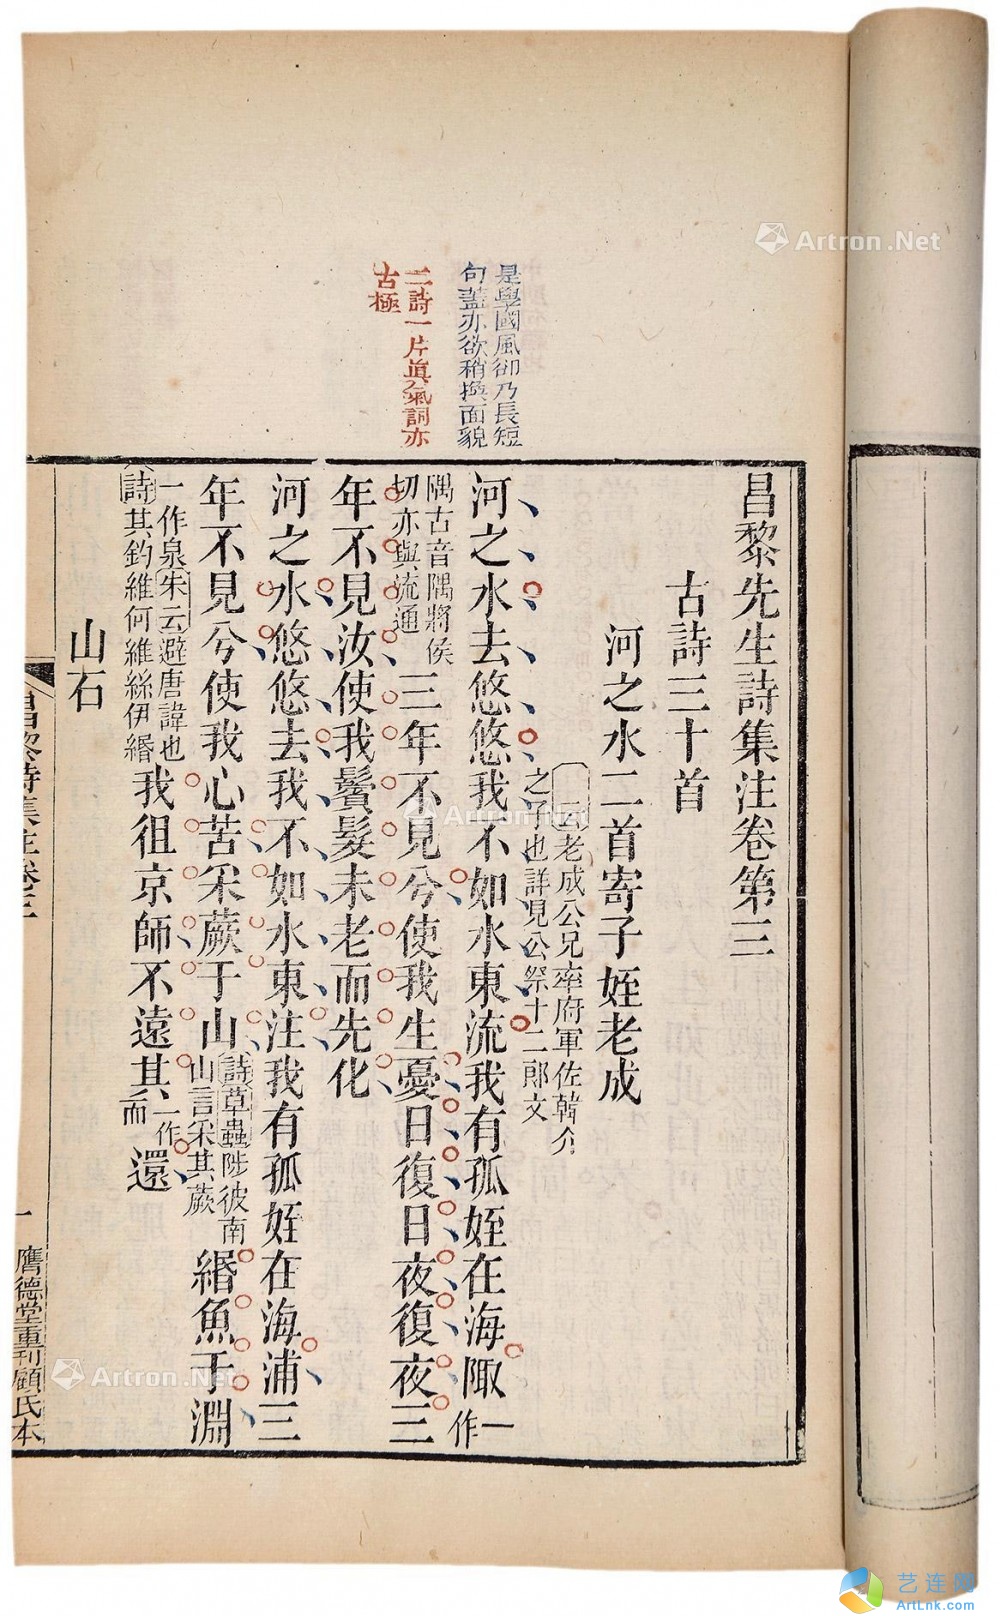 是學國風卻乃長短
句蓋亦欲稍換面貌
二詩一片真氣詞亦
古極
昌黎先生詩集注卷第三
古詩三十首
河之水二首寄子姪老成
云老成公兄率府軍佐韓介
之子也詳見公祭十二郎文
河之水去悠悠我不如水東流我有孤姪在海陬一作
隅古音隅將侯
切亦與流通
三年不見兮使我生憂日復日夜復夜三
年不見汝使我鬢髮未老而先化
河之水悠悠去我不如水東注我有孤姪在海浦三
年不見兮使我心苦采蕨于山
詩草蟲陟彼南
山言采其蕨
緡魚于淵
一作泉朱云避唐諱也
詩其釣維何維絲伊緡
我徂京師不遠其一作而還
山石
昌黎詩集注卷三
一
膺德堂重刊顧氏本
Artron.Net
Artron.Net
Artron.Net
艺连网
ArtLnk.com